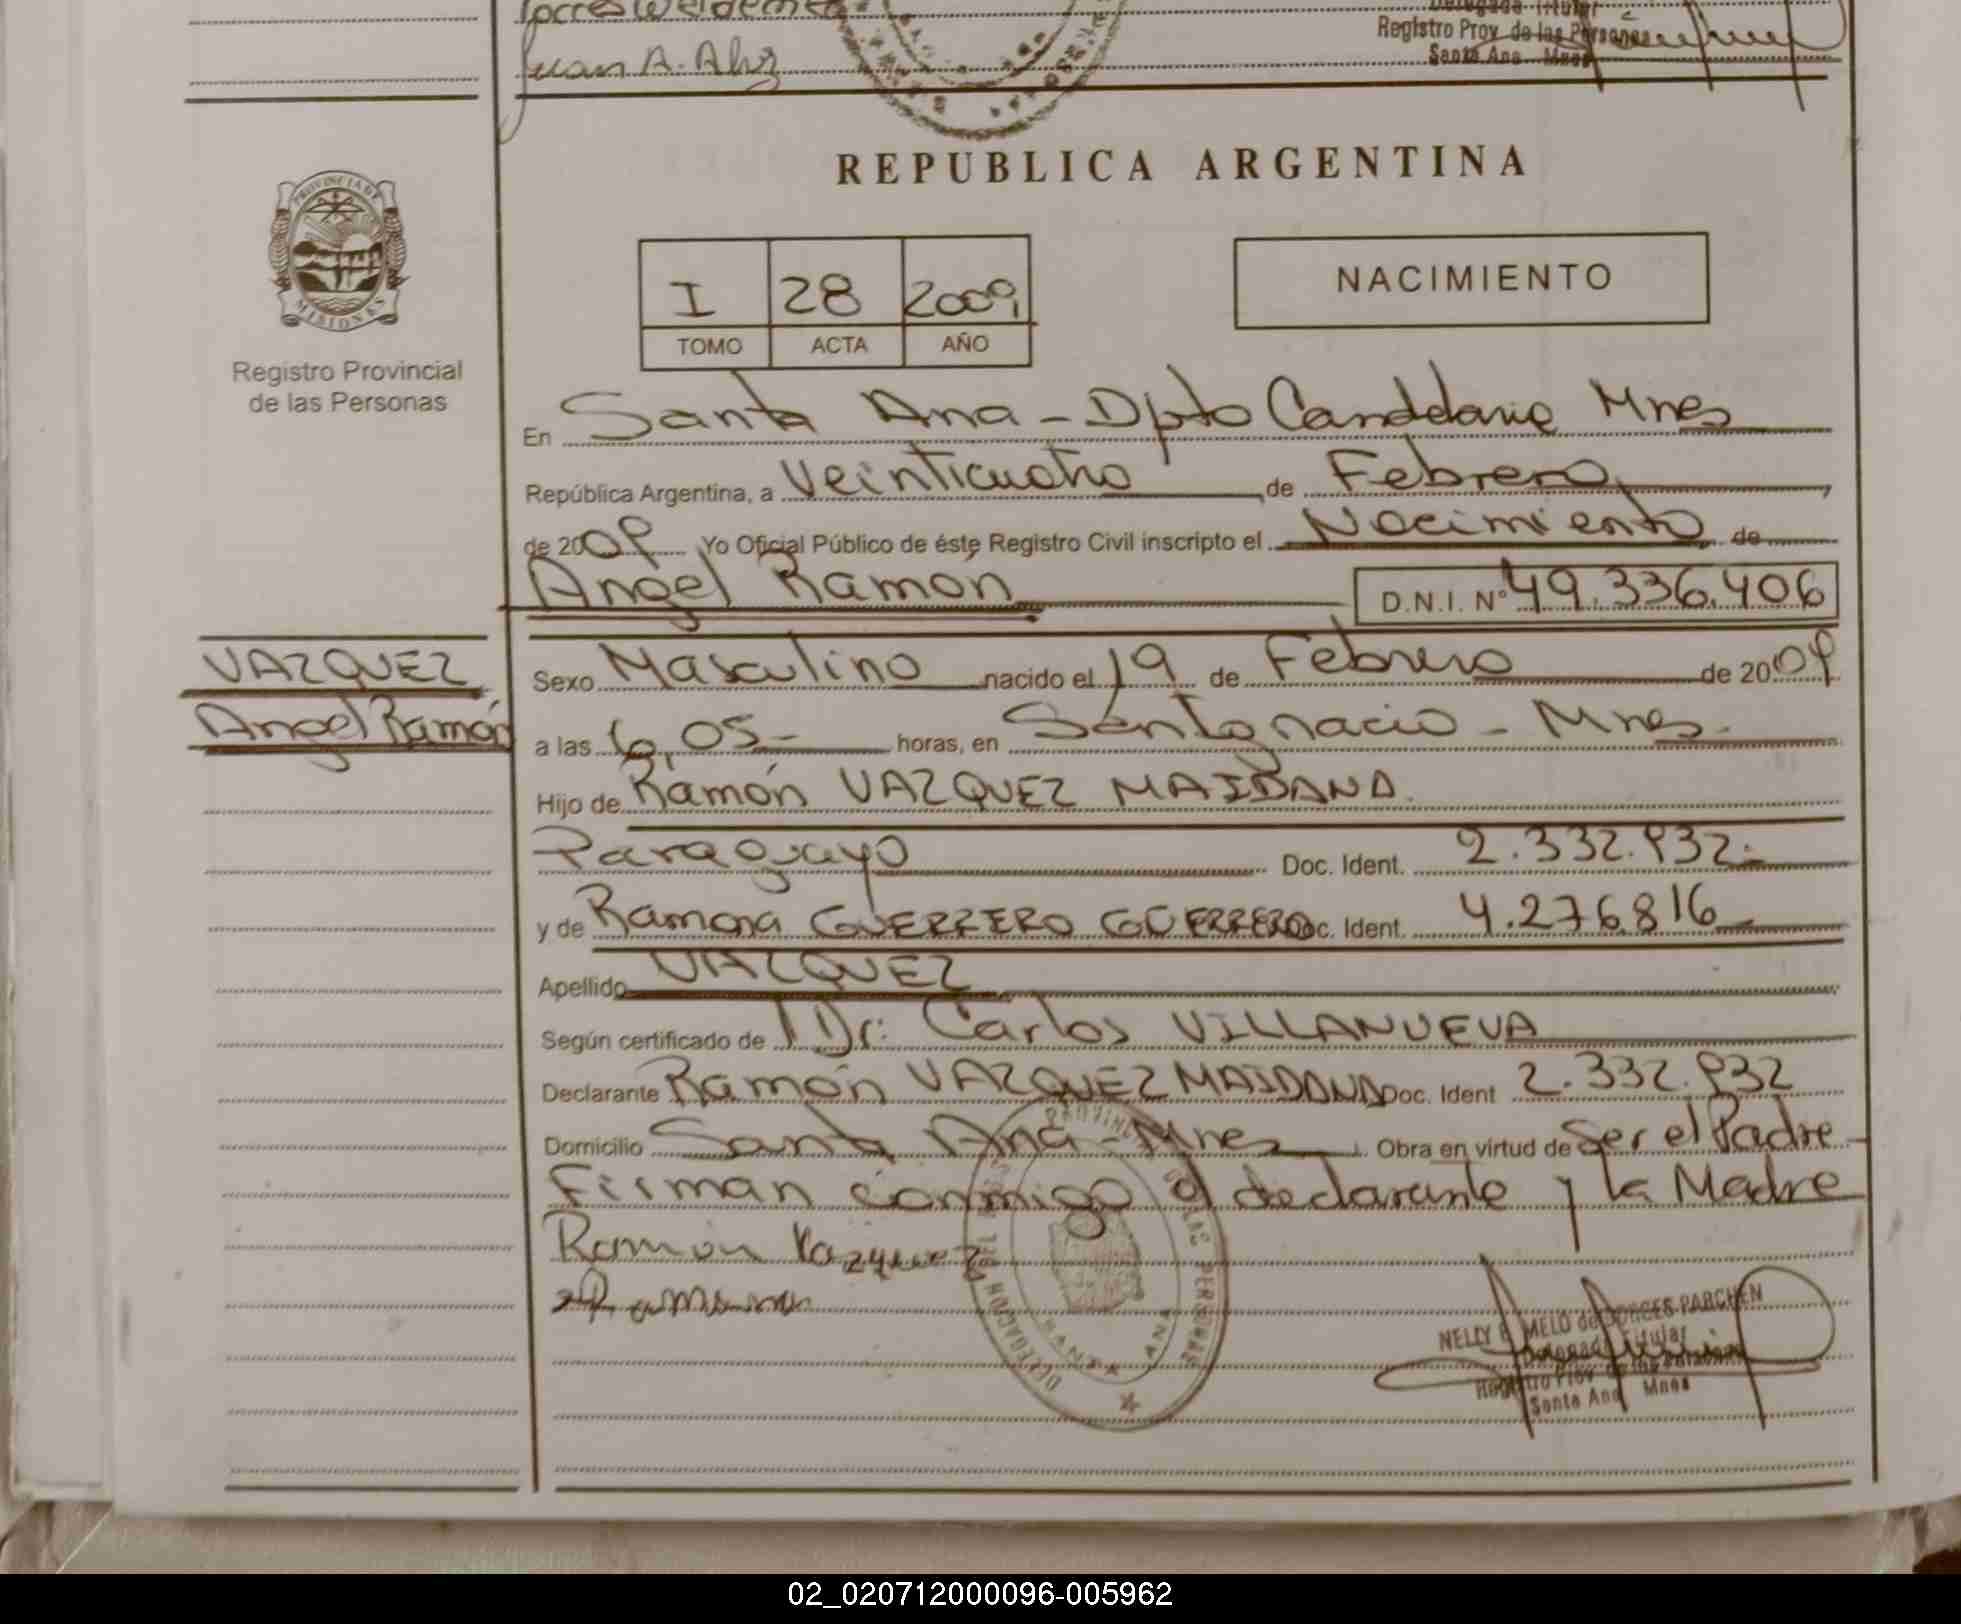 Juan A.
Registro Prov. de las Personas
Santa Ana Mnes
REPUBLICA ARGENTINA
PROVINCIA DE
MISIONES
Registro Provincial
de las Personas
I 28 2009
TOMO ACTA AÑO
NACIMIENTO
En Santa Ana - Dpto Candelaria Mnes
República Argentina, a Veinticuatro de Febrero
de 2009 Yo Oficial Público de éste Registro Civil inscripto el Nacimiento de
Angel Ramón D.N.I. Nº 49.336.406
VAZQUEZ
Angel Ramón
Sexo Masculino nacido el 19 de Febrero de 2009
a las 6,05- horas, en San Ignacio - Mnes.
Hijo de Ramón VAZQUEZ MAIDANA
Paraguayo Doc. Ident. 2.332.932.-
y de Ramona GUERRERO GUERRERO Doc. Ident. 4.276.816
Apellido VAZQUEZ
Según certificado de Dr. Carlos VILLANUEVA
Declarante Ramón VAZQUEZ MAIDANA Doc. Ident 2.332.932
Domicilio Santa Ana - Mnes Obra en virtud de Ser el Padre
Firman conmigo el declarante y la Madre
Ramón Vazquez
Ramona
DELEGACION SANTA ANA
NELLY E. MELO de BORGES PARCHEN
Delegada Titular
Registro Prov. de las Personas
Santa Ana Mnes
02_020712000096-005962